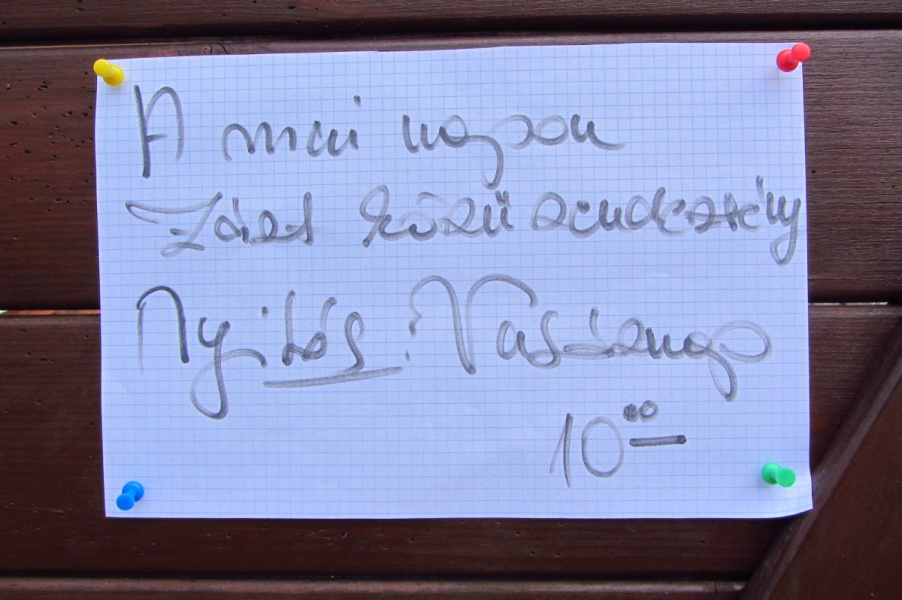 A mai napon
Zárt körű rendezvény
Nyitás: Vasárnap
10⁰⁰